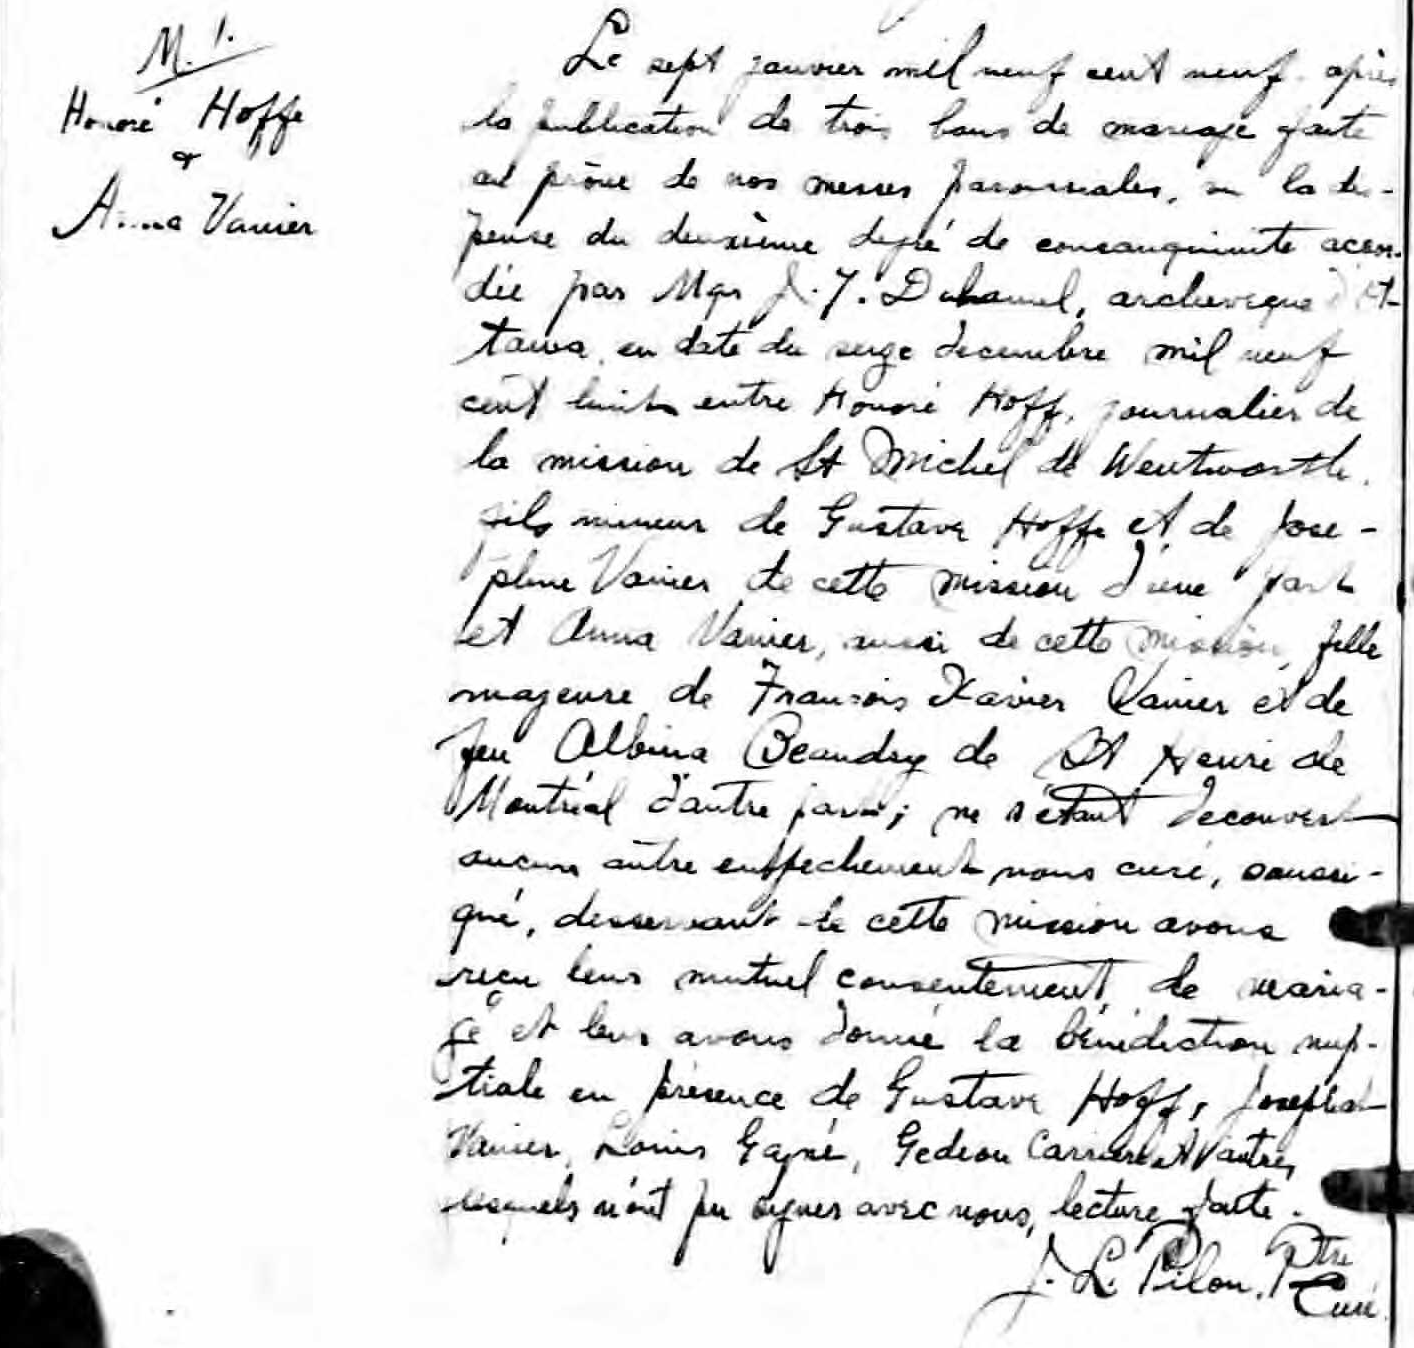 M. 1.
Honoré Hoffe
&
Anna Vanier
Le sept janvier mil neuf cent neuf, après
la publication de trois bans de mariage faite
au prône de nos messes paroissiales, vu la dis-
pense du deuxième degré de consanguinité accor-
dée par Mgr J. T. Duhamel, archevêque d'Ot-
tawa, en date du seize decembre mil neuf
cent huit, entre Honoré Hoff, journalier de
la mission de St Michel de Wentworth,
fils mineur de Gustave Hoffe et de José-
phine Vanier de cette mission d'une part
et Anna Vanier, aussi de cette mission, fille
majeure de François Xavier Vanier et de
feu Albina Beaudry de St Henri de
Montréal d'autre part; ne s'étant découvert
aucun autre empêchement nous curé, soussi-
gné, desservant de cette mission avons
reçu leur mutuel consentement de maria-
ge et leur avons donné la bénédiction nup-
tiale en présence de Gustave Hoff, Josephat
Vanier, Louis Gagné, Gedeon Carrière et d'autres,
lesquels n'ont pu signer avec nous, lecture faite.
J. L. Pilon, Ptre
Curé.